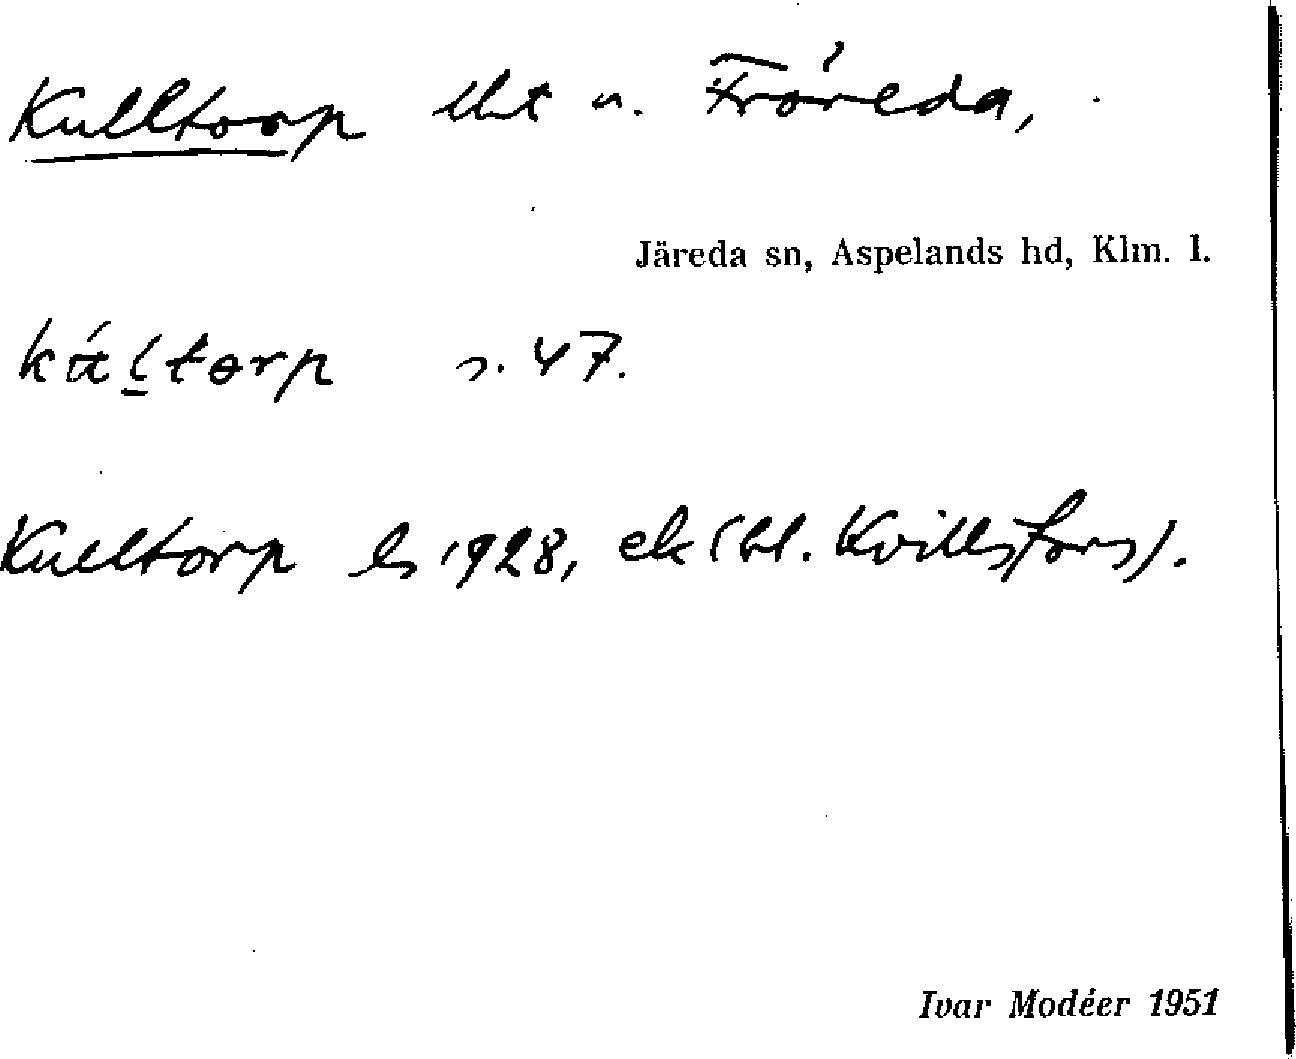 Kulltorp lht u. Fröreda,
Järeda sn, Aspelands hd, Klm. l.
torp s. 47.
Kulltorp ls 1928, ek (bl. Kvillsfors).
Ivar Modéer 1951